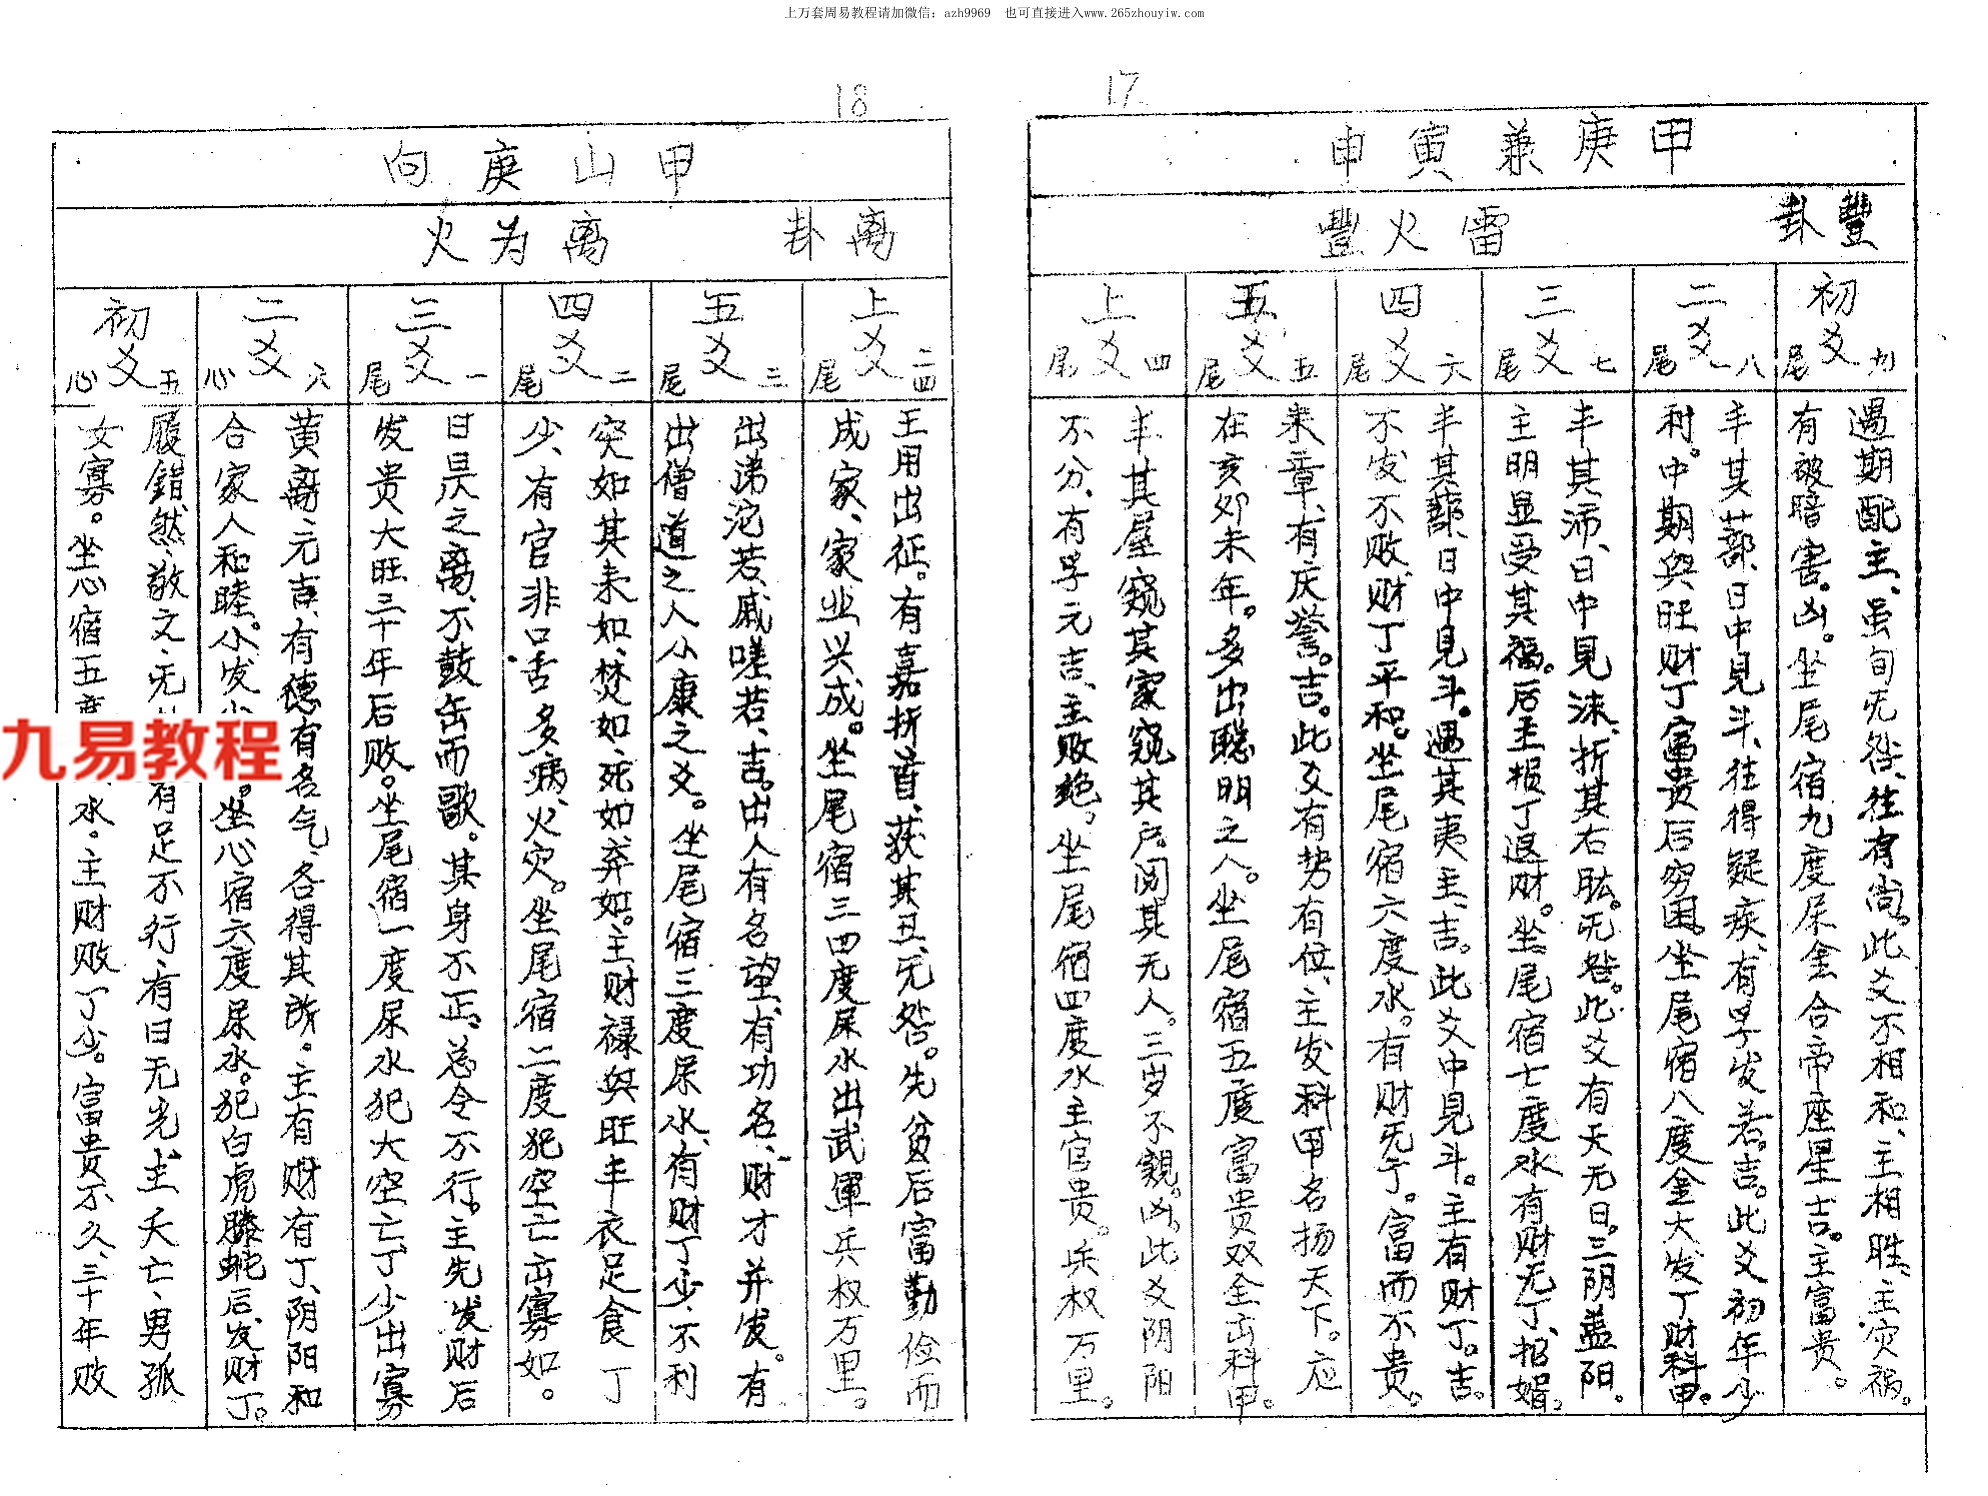 上万套周易教程请加微信：azh9969　也可直接进入www.265zhouyiw.com
17
甲庚兼寅申
豐卦　雷火豐
初爻　尾九
遇期配主、虽旬无咎、往有尚。此爻不相和、主相胜、主灾祸。
有破暗害。凶。坐尾宿九度尿金合帝座星吉。主富贵。
二爻　尾一八
丰其蔀、日中見斗、往得疑疾、有孚发若。吉。此爻初年少
利。中期兴旺财丁富贵后穷困。坐尾宿八度金大发丁财科甲。
三爻　尾七
丰其沛、日中見沬、折其右肱。无咎。此爻有天无日。三阴盖阳。
主明显受其福。后主损丁退财。坐尾宿七度水有财无丁、招婿。
四爻　尾六
丰其蔀、日中見斗。遇其夷主、吉。此爻中見斗。主有财丁。吉。
不发不败、财丁平和。坐尾宿六度水。有财无丁。富而不贵。
五爻　尾五
来章、有庆誉。吉。此爻有势有位、主发科甲名扬天下。应
在亥卯未年。多出聪明之人。坐尾宿五度富贵双全出科甲。
上爻　尾四
丰其屋窥其家窥其户、阅其无人。三岁不覿。凶。此爻阴阳
不分、有孚元吉、主败绝。坐尾宿四度水主官贵。兵权万里。
18
甲山庚向
离卦　离为火
上爻　尾二四
王用出征。有嘉折首、获其丑、无咎。先贫后富勤俭而
成家、家业兴成。坐尾宿三四度尿水出武軍兵权万里。
五爻　尾三
出涕沱若、戚嗟若、吉。出人有名望、有功名、财才并发。有
出僧道之人小康之爻。坐尾宿三度尿水、有财丁少、不利
四爻　尾二
突如其来如、焚如、死如、弃如。主财禄兴旺丰衣足食丁
少、有官非口舌多病、火灾。坐尾宿二度犯空亡出寡如。
三爻　尾一
日昃之离、不鼓缶而歌。其身不正、总令不行。主先发财后
发贵大旺三十年后败。坐尾宿一度尿水犯大空亡丁少出寡
二爻　心六
黄离元吉、有德有名气、各得其所。主有财有丁、阴阳和
合家人和睦。小发少。坐心宿六度尿水。犯白虎騰蛇后、发财丁。
初爻　心五
履錯然、敬之、无有足不行、有日无光、主夭亡、男孤
女寡。坐心宿五度水。主财败丁少。富贵不久、三十年败
九易教程